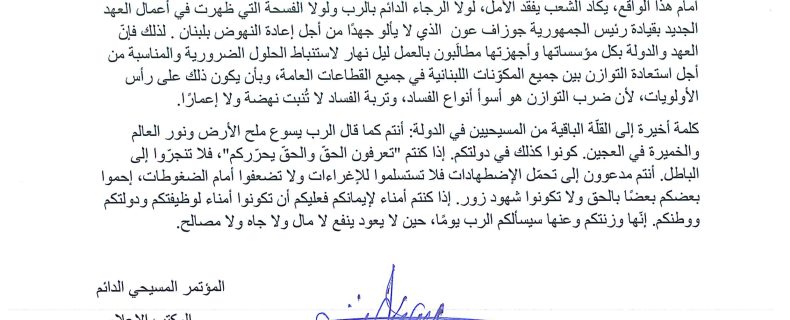 أمام هذا الواقع، يكاد الشعب يفقد الأمل، لولا الرجاء الدائم بالرب ولولا الفسحة التي ظهرت في أعمال العهد
الجديد بقيادة رئيس الجمهورية جوزاف عون الذي لا يألو جهدًا من أجل إعادة النهوض بلبنان . لذلك فإنّ
العهد والدولة بكل مؤسساتها وأجهزتها مطالَبون بالعمل ليل نهار لاستنباط الحلول الضرورية والمناسبة من
أجل استعادة التوازن بين جميع المكوّنات اللبنانية في جميع القطاعات العامة، وبأن يكون ذلك على رأس
الأولويات، لأن ضرب التوازن هو أسوأ أنواع الفساد، وتربة الفساد لا تُنبت نهضة ولا إعمارًا.
كلمة أخيرة إلى القلّة الباقية من المسيحيين في الدولة: أنتم كما قال الرب يسوع ملح الأرض ونور العالم
والخميرة في العجين. كونوا كذلك في دولتكم. إذا كنتم "تعرفون الحقّ والحقّ يحرّركم"، فلا تنجرّوا إلى
الباطل. أنتم مدعوون إلى تحمّل الإضطهادات فلا تستسلموا للإغراءات ولا تضعفوا أمام الضغوطات، إحموا
بعضكم بعضًا بالحق ولا تكونوا شهود زور. إذا كنتم أمناء لإيمانكم فعليكم أن تكونوا أمناء لوظيفتكم ودولتكم
ووطنكم. إنّها وزنتكم وعنها سيسألكم الرب يومًا، حين لا يعود ينفع لا مال ولا جاه ولا مصالح.
المؤتمر المسيحي الدائم